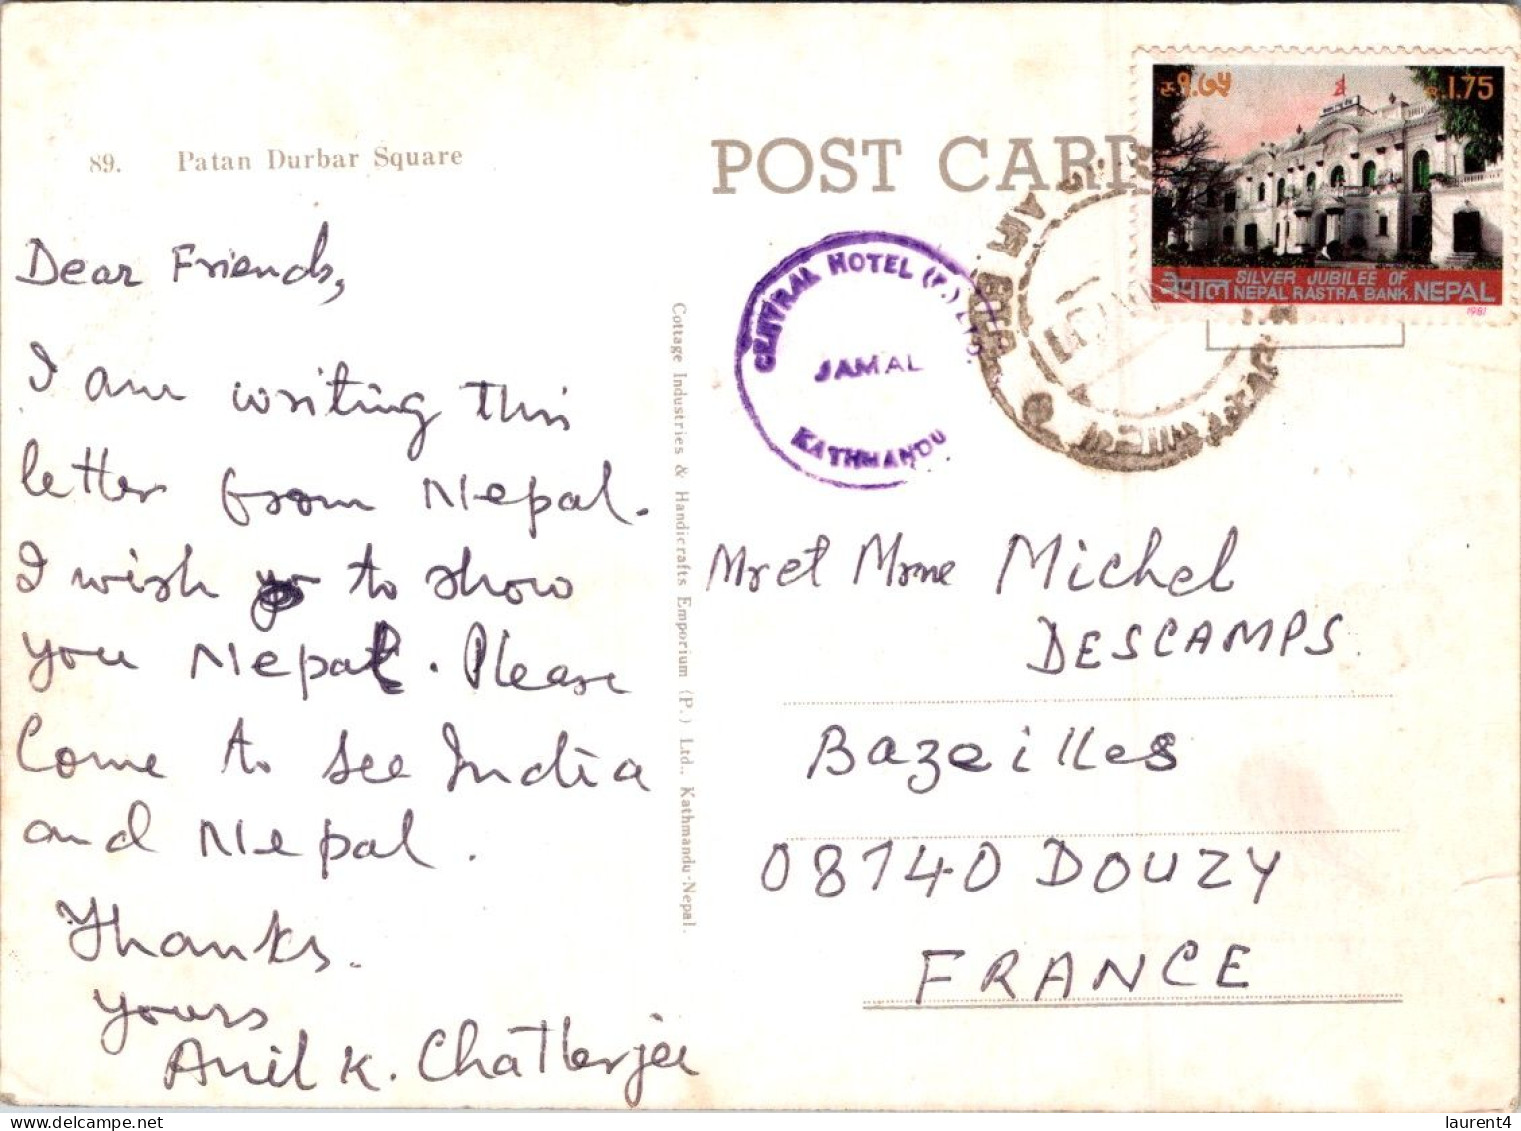 89. Patan Durbar Square
Dear Friends,
I am writing this
letter from Nepal.
I wish to show
you Nepal. Please
Come to see India
and Nepal.
Thanks.
Yours
Anil K. Chatterjee
Cottage Industries & Handicrafts Emporium (P.) Ltd., Kathmandu-Nepal.
POST CARD
रु.१.७५
R.1.75
SILVER JUBILEE OF
नेपाल NEPAL RASTRA BANK. NEPAL
1981
CENTRAL HOTEL (P.) LTD.
JAMAL
KATHMANDU
Mr et Mme Michel
DESCAMPS.
Bazeilles
08140 DOUZY
FRANCE
laurent4